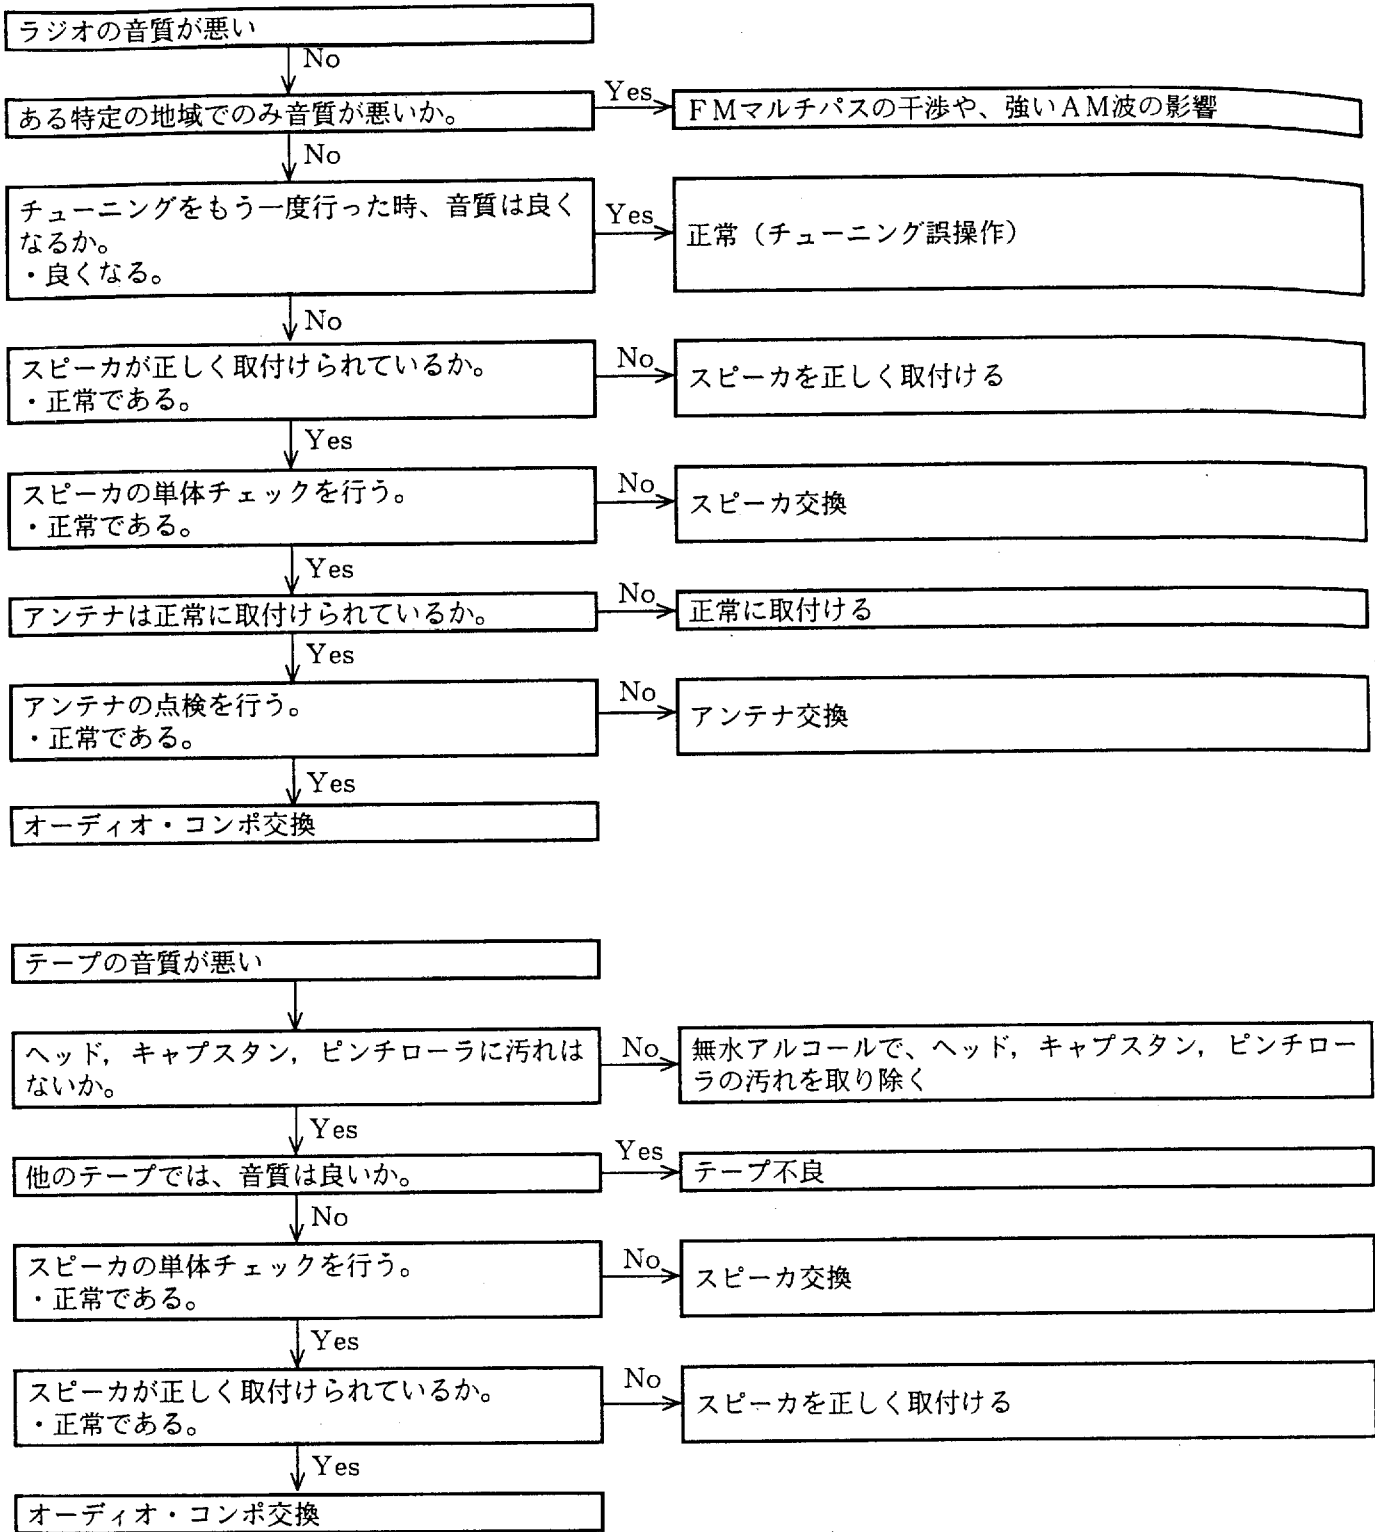 ラジオの音質が悪い
No
ある特定の地域でのみ音質が悪いか。
Yes
FMマルチパスの干渉や、強いAM波の影響
No
チューニングをもう一度行った時、音質は良く
なるか。
・良くなる。
Yes
正常（チューニング誤操作）
No
スピーカが正しく取付けられているか。
・正常である。
No
スピーカを正しく取付ける
Yes
スピーカの単体チェックを行う。
・正常である。
No
スピーカ交換
Yes
アンテナは正常に取付けられているか。
No
正常に取付ける
Yes
アンテナの点検を行う。
・正常である。
No
アンテナ交換
Yes
オーディオ・コンポ交換
テープの音質が悪い
ヘッド，キャプスタン，ピンチローラに汚れは
ないか。
No
無水アルコールで、ヘッド，キャプスタン，ピンチロー
ラの汚れを取り除く
Yes
他のテープでは、音質は良いか。
Yes
テープ不良
No
スピーカの単体チェックを行う。
・正常である。
No
スピーカ交換
Yes
スピーカが正しく取付けられているか。
・正常である。
No
スピーカを正しく取付ける
Yes
オーディオ・コンポ交換